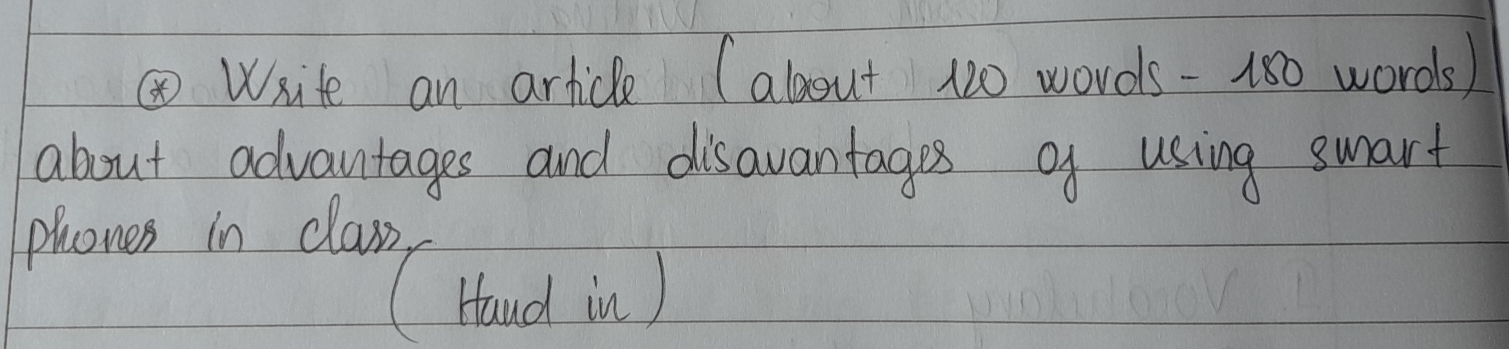 ⊛ Write an article (about 120 words - 180 words)
about advantages and disavantages of using smart
phones in class.
(Hand in)